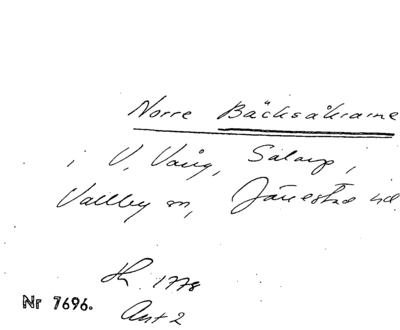 Norre Bäcksåkrarne
i V. Vång, Salarp,
Vallby sn, Järrestad hd
Lh. 1778
Nr 7696.
Akt 2